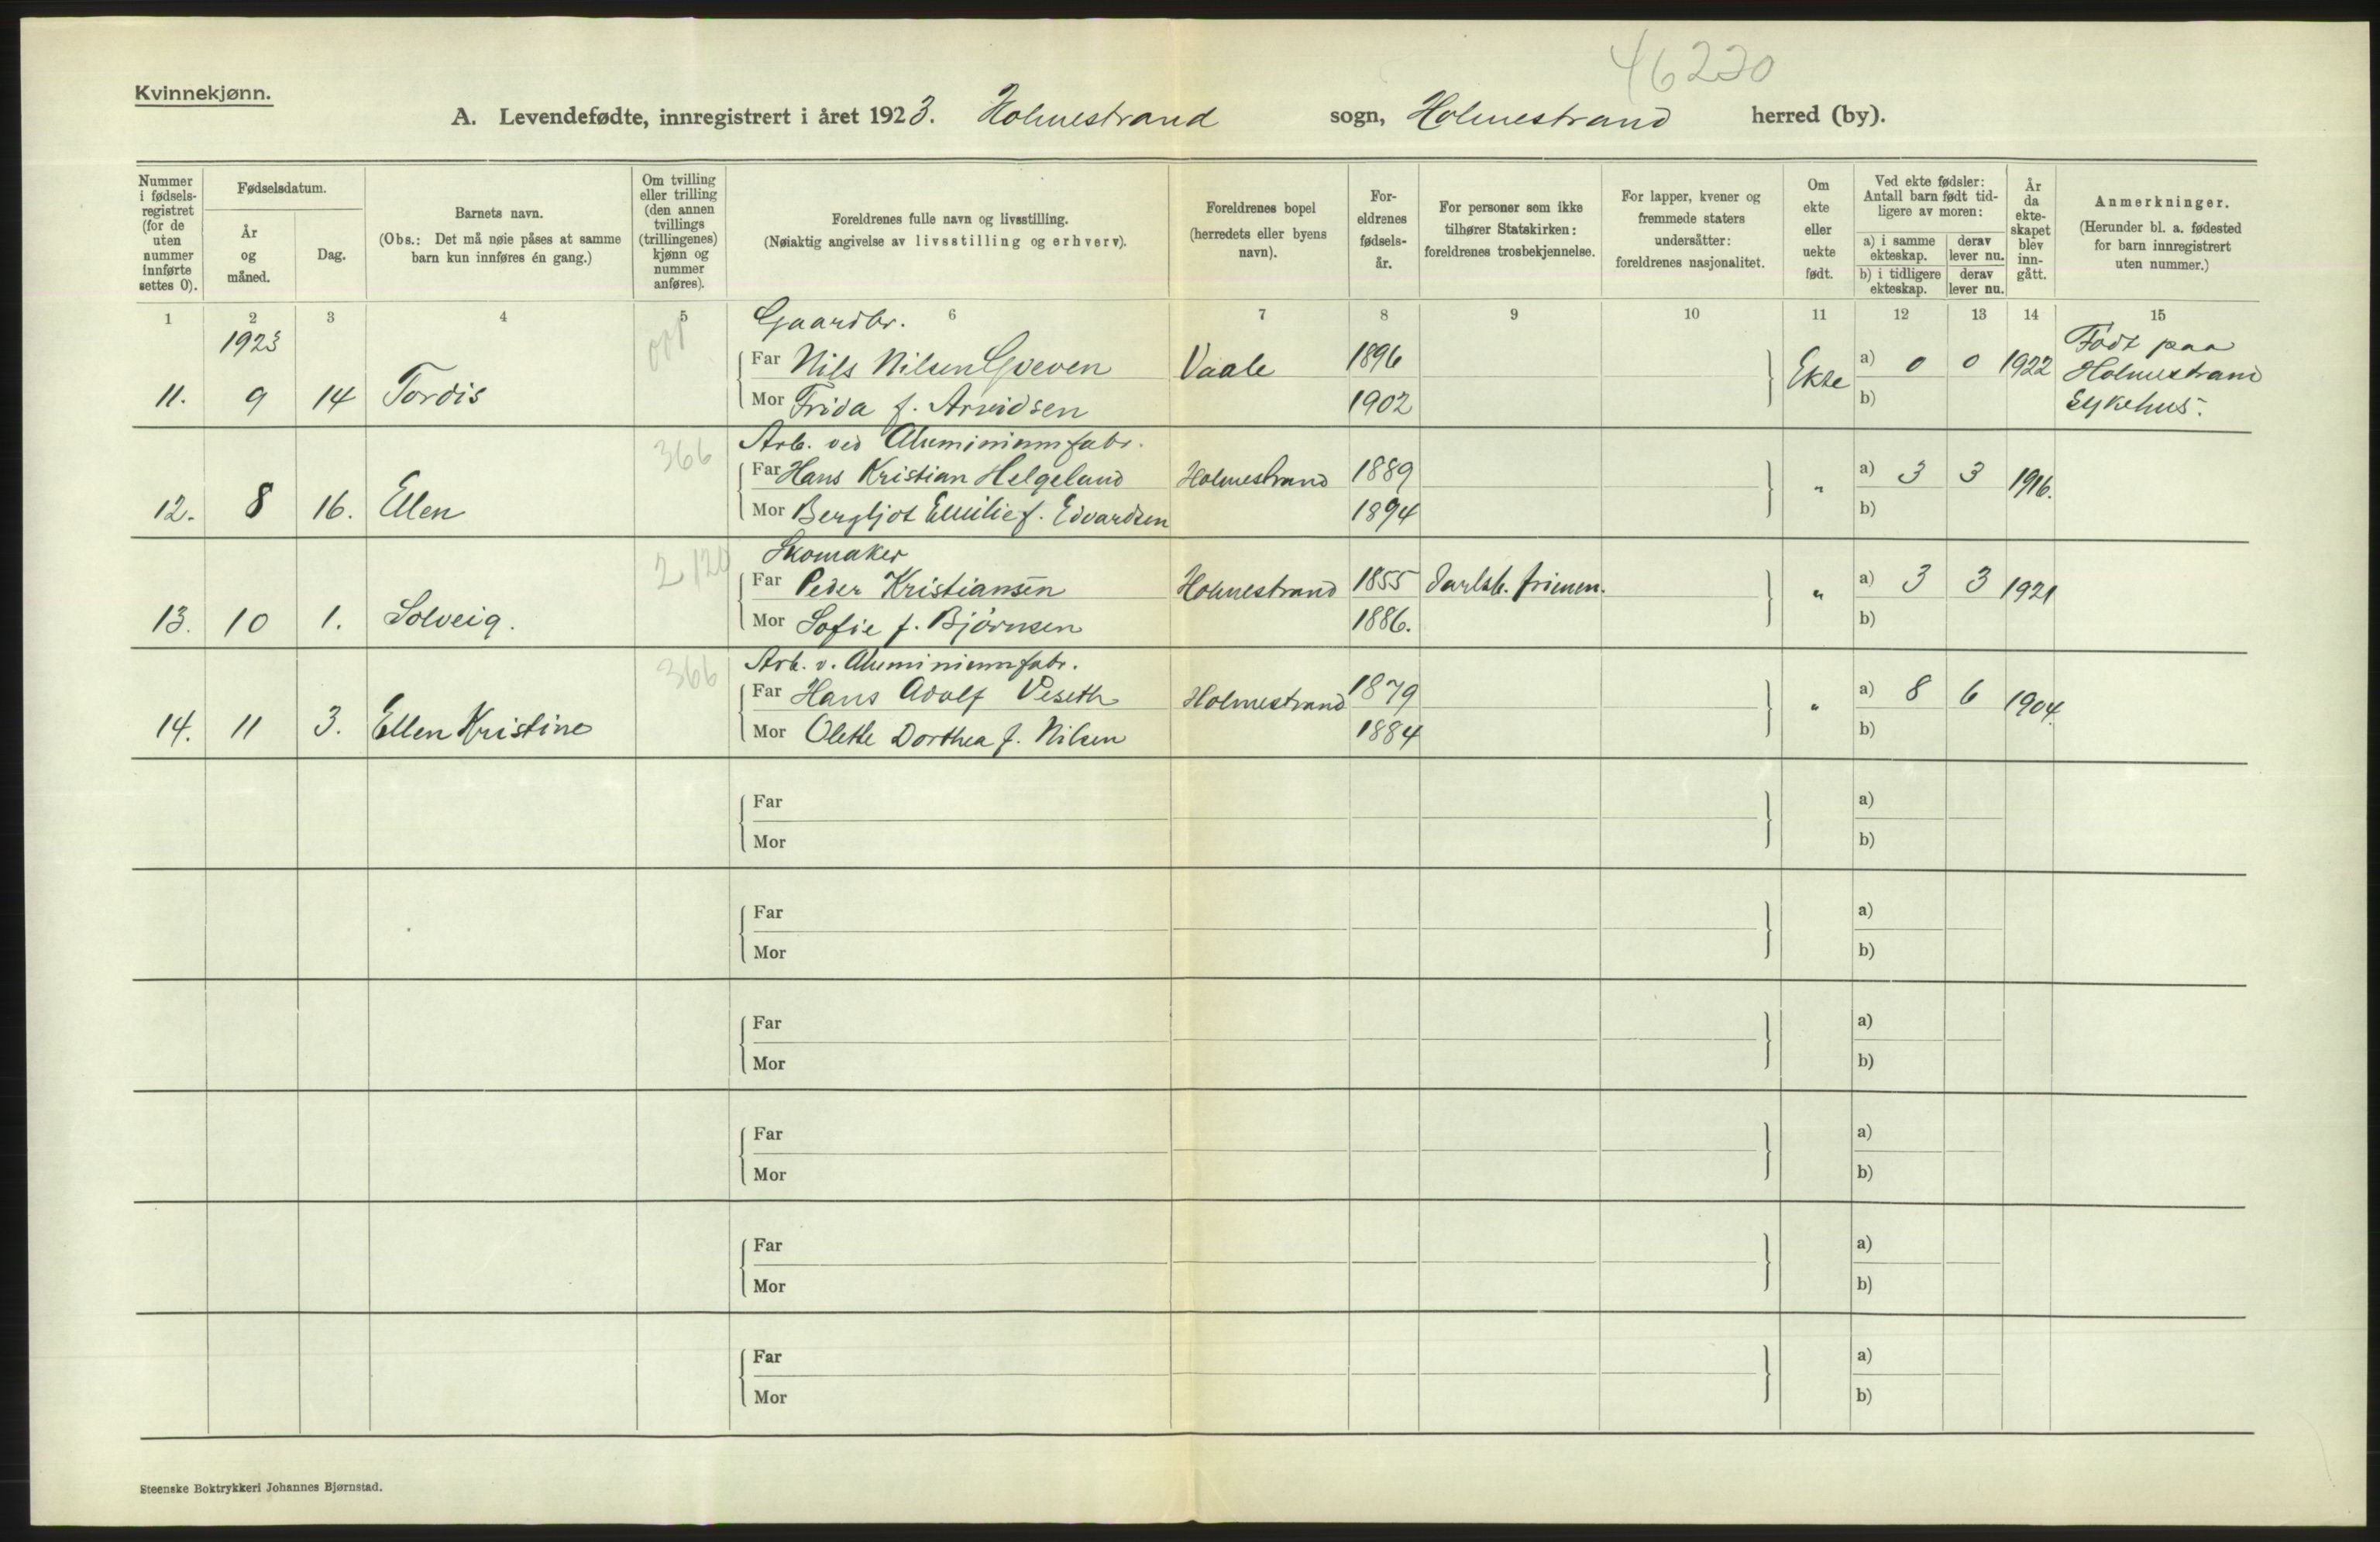 46220
Kvinnekjønn.
A. Levendefødte, innregistrert i året 1923. Holmestrand sogn, Holmestrand herred (by).
Nummer i fødselsregistret (for de uten nummer innførte settes 0).
Fødselsdatum.
År og måned.
Dag.
Barnets navn.
(Obs.: Det må nøie påses at samme barn kun innføres én gang.)
Om tvilling eller trilling (den annen tvillings (trillingenes) kjønn og nummer anføres).
Foreldrenes fulle navn og livsstilling.
(Nøiaktig angivelse av livsstilling og erhverv).
Foreldrenes bopel (herredets eller byens navn).
Foreldrenes fødselsår.
For personer som ikke tilhører Statskirken: foreldrenes trosbekjennelse.
For lapper, kvener og fremmede staters undersåtter: foreldrenes nasjonalitet.
Om ekte eller uekte født.
Ved ekte fødsler: Antall barn født tidligere av moren:
a) i samme ekteskap. derav lever nu.
b) i tidligere ekteskap. derav lever nu.
År da ekteskapet blev inngått.
Anmerkninger.
(Herunder bl. a. fødested for barn innregistrert uten nummer.)
1 2 3 4 5 6 7 8 9 10 11 12 13 14 15
1923 Gaardbr. Født paa
Far Nils Nilsen Vaale 1896 Ekte a) 0 0 1922 Holmestrand
11. 9 14 Tordis Mor Frida f. Arvidsen 1902 b) Sykehus.
366 Arb. ved Aluminiumfabr.
Far Hans Kristian Helgeland Holmestrand 1889 " a) 3 3 1916.
12. 8 16. Ellen Mor Bergljot Emilie f. Edvardsen 1894 b)
2 120 Skomaker
Far Peder Kristiansen Holmestrand 1855 " a) 3 3 1921
13. 10 1. Solveig. Mor Sofie f. Bjørnsen 1886. b)
366 Arb. v. Aluminiumfabr.
Far Hans Adolf Veseth Holmestrand 1879 " a) 8 6 1904.
14. 11 3. Ellen Kristine Mor Olette Dorthea f. Nilsen 1884 b)
Far a)
Mor b)
Far a)
Mor b)
Far a)
Mor b)
Far a)
Mor b)
Far a)
Mor b)
Far a)
Mor b)
Steenske Boktrykkeri Johannes Bjørnstad.